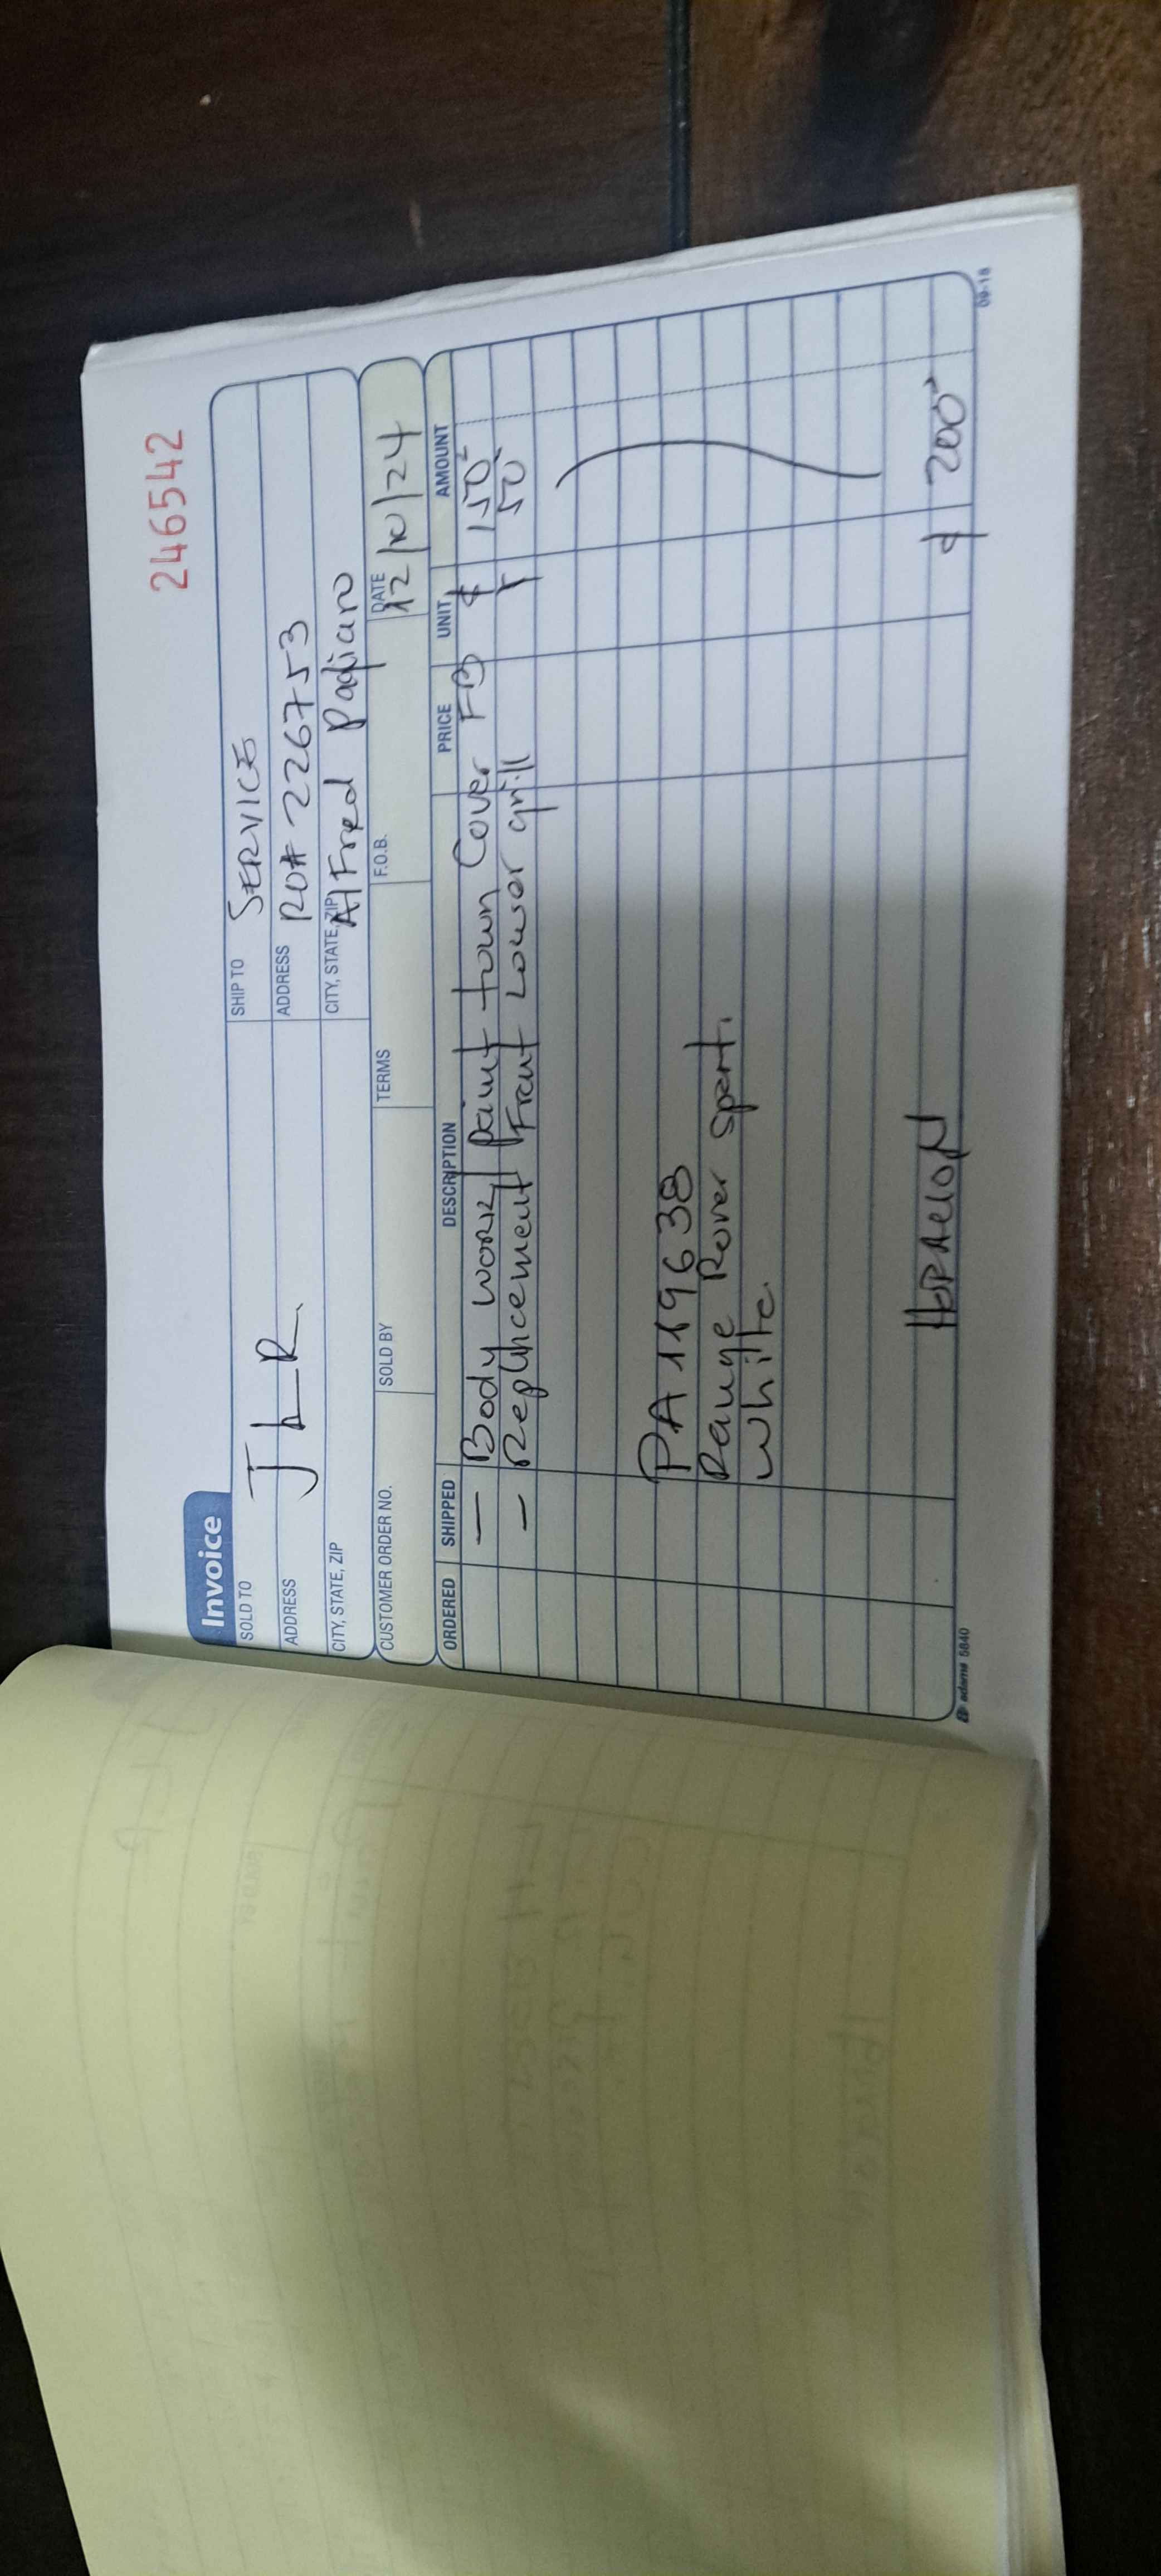 246542
Invoice
SOLD TO JLR
ADDRESS
CITY, STATE, ZIP
SHIP TO SERVICE
ADDRESS RO# 226753
CITY, STATE, ZIP Alfred Padiaro
CUSTOMER ORDER NO. SOLD BY TERMS F.O.B. DATE 12/10/24
ORDERED SHIPPED DESCRIPTION PRICE UNIT AMOUNT
— Body work/paint town Cover FB $ 150
— Replacement Front Lower grill 50
PA119638
Range Rover sport.
white.
$ 200
adams 5840
09-18